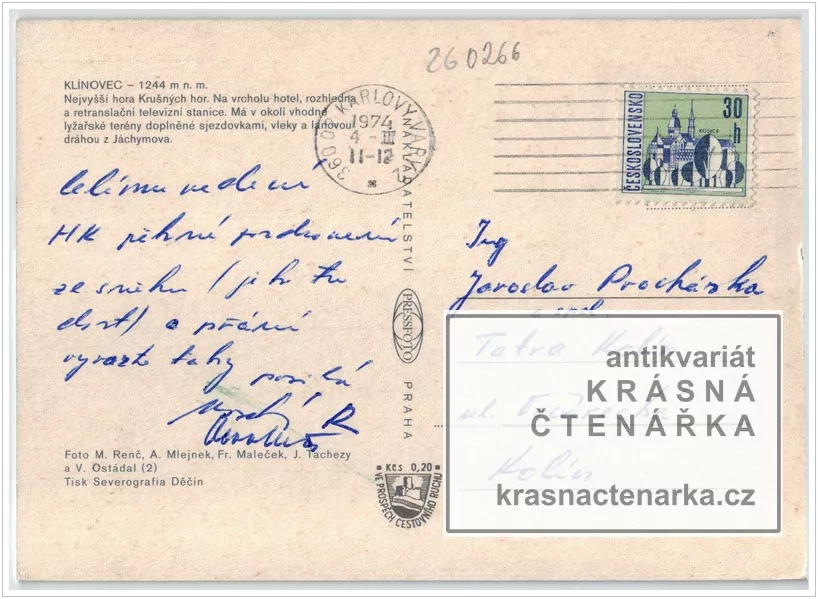 260266
KLÍNOVEC – 1244 m n. m.
Nejvyšší hora Krušných hor. Na vrcholu hotel, rozhledna
a retranslační televizní stanice. Má v okolí vhodné
lyžařské terény doplněné sjezdovkami, vleky a lanovou
dráhou z Jáchymova.
360 00 KARLOVY VARY
1974
4 -III
11-12
ČESKOSLOVENSKO
30
h
KOŠICE
NAKLADATELSTVÍ
PRESSFOTO
PRAHA
celému vedení
HK pěkné pozdravení
ze sněhu (je ho tu
dost) a přání
tahy posílá
Ing
Jaroslav Procházka
Tatra Kolín
ul.
Kolín
antikvariát
KRÁSNÁ
ČTENÁŘKA
krasnactenarka.cz
Foto M. Renč, A. Mlejnek, Fr. Maleček, J. Tachezy
a V. Ostádal (2)
Tisk Severografia Děčín
Kčs 0,20
VE PROSPĚCH CESTOVNÍHO RUCHU